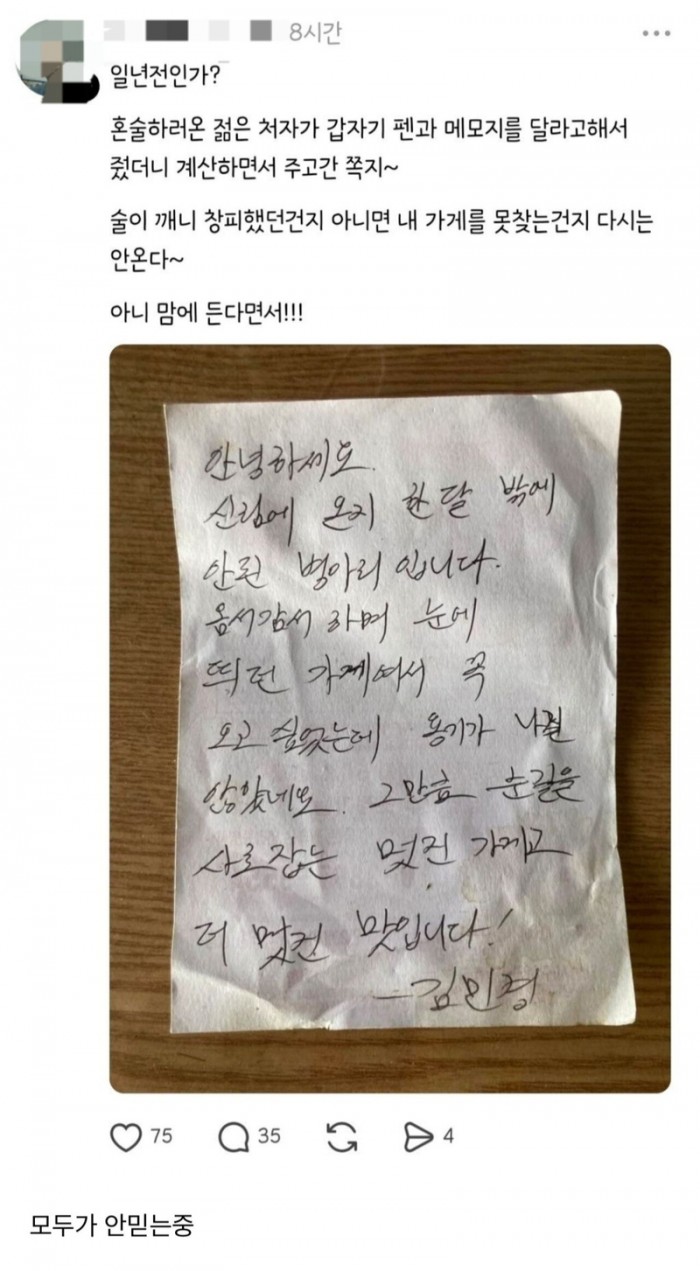 8시간
일년전인가?
혼술하러온 젊은 처자가 갑자기 펜과 메모지를 달라고해서
줬더니 계산하면서 주고간 쪽지~
술이 깨니 창피했던건지 아니면 내 가게를 못찾는건지 다시는
안온다~
아니 맘에 든다면서!!!
안녕하세요.
신림에 온지 한달 밖에
안된 병아리 입니다.
옴서감서 하며 눈에
띄던 가게여서 꼭
오고 싶었는데 용기가 나질
않았네요. 그만큼 눈길을
사로잡는 멋진 가게고
더 멋진 맛입니다!
75
35
4
모두가 안믿는중